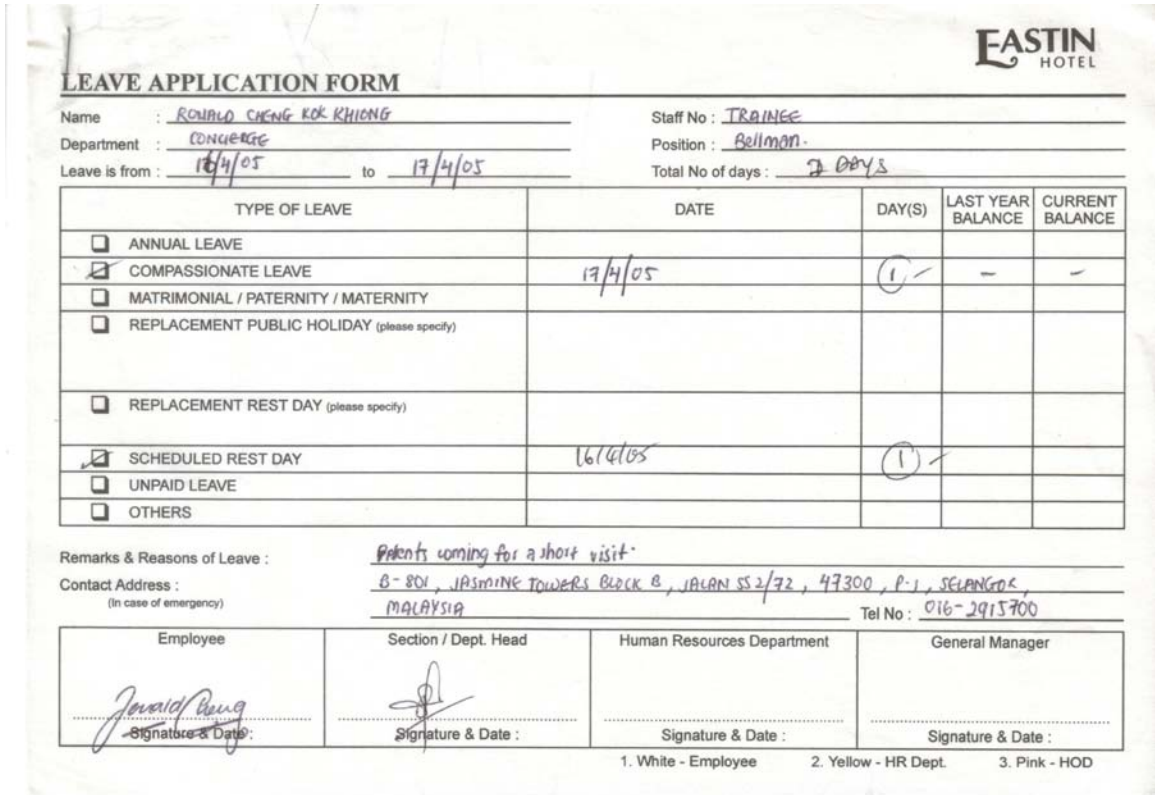 EASTIN
HOTEL
LEAVE APPLICATION FORM
Name : RONALD CHENG KOK KHIONG Staff No : TRAINEE
Department : CONCIERGE Position : Bellman.
Leave is from : 16/4/05 to 17/4/05 Total No of days : 2 DAYS
TYPE OF LEAVE DATE DAY(S) LAST YEAR BALANCE CURRENT BALANCE
ANNUAL LEAVE
COMPASSIONATE LEAVE 17/4/05 1 - - -
MATRIMONIAL / PATERNITY / MATERNITY
REPLACEMENT PUBLIC HOLIDAY (please specify)
REPLACEMENT REST DAY (please specify)
SCHEDULED REST DAY 16/4/05 1 -
UNPAID LEAVE
OTHERS
Remarks & Reasons of Leave : Parents coming for a short visit.
Contact Address : B-801, JASMINE TOWERS BLOCK B, JALAN SS2/72, 47300, P.J, SELANGOR,
(In case of emergency) MALAYSIA Tel No : 016-2915700
Employee Section / Dept. Head Human Resources Department General Manager
Signature & Date : Signature & Date : Signature & Date : Signature & Date :
1. White - Employee 2. Yellow - HR Dept. 3. Pink - HOD